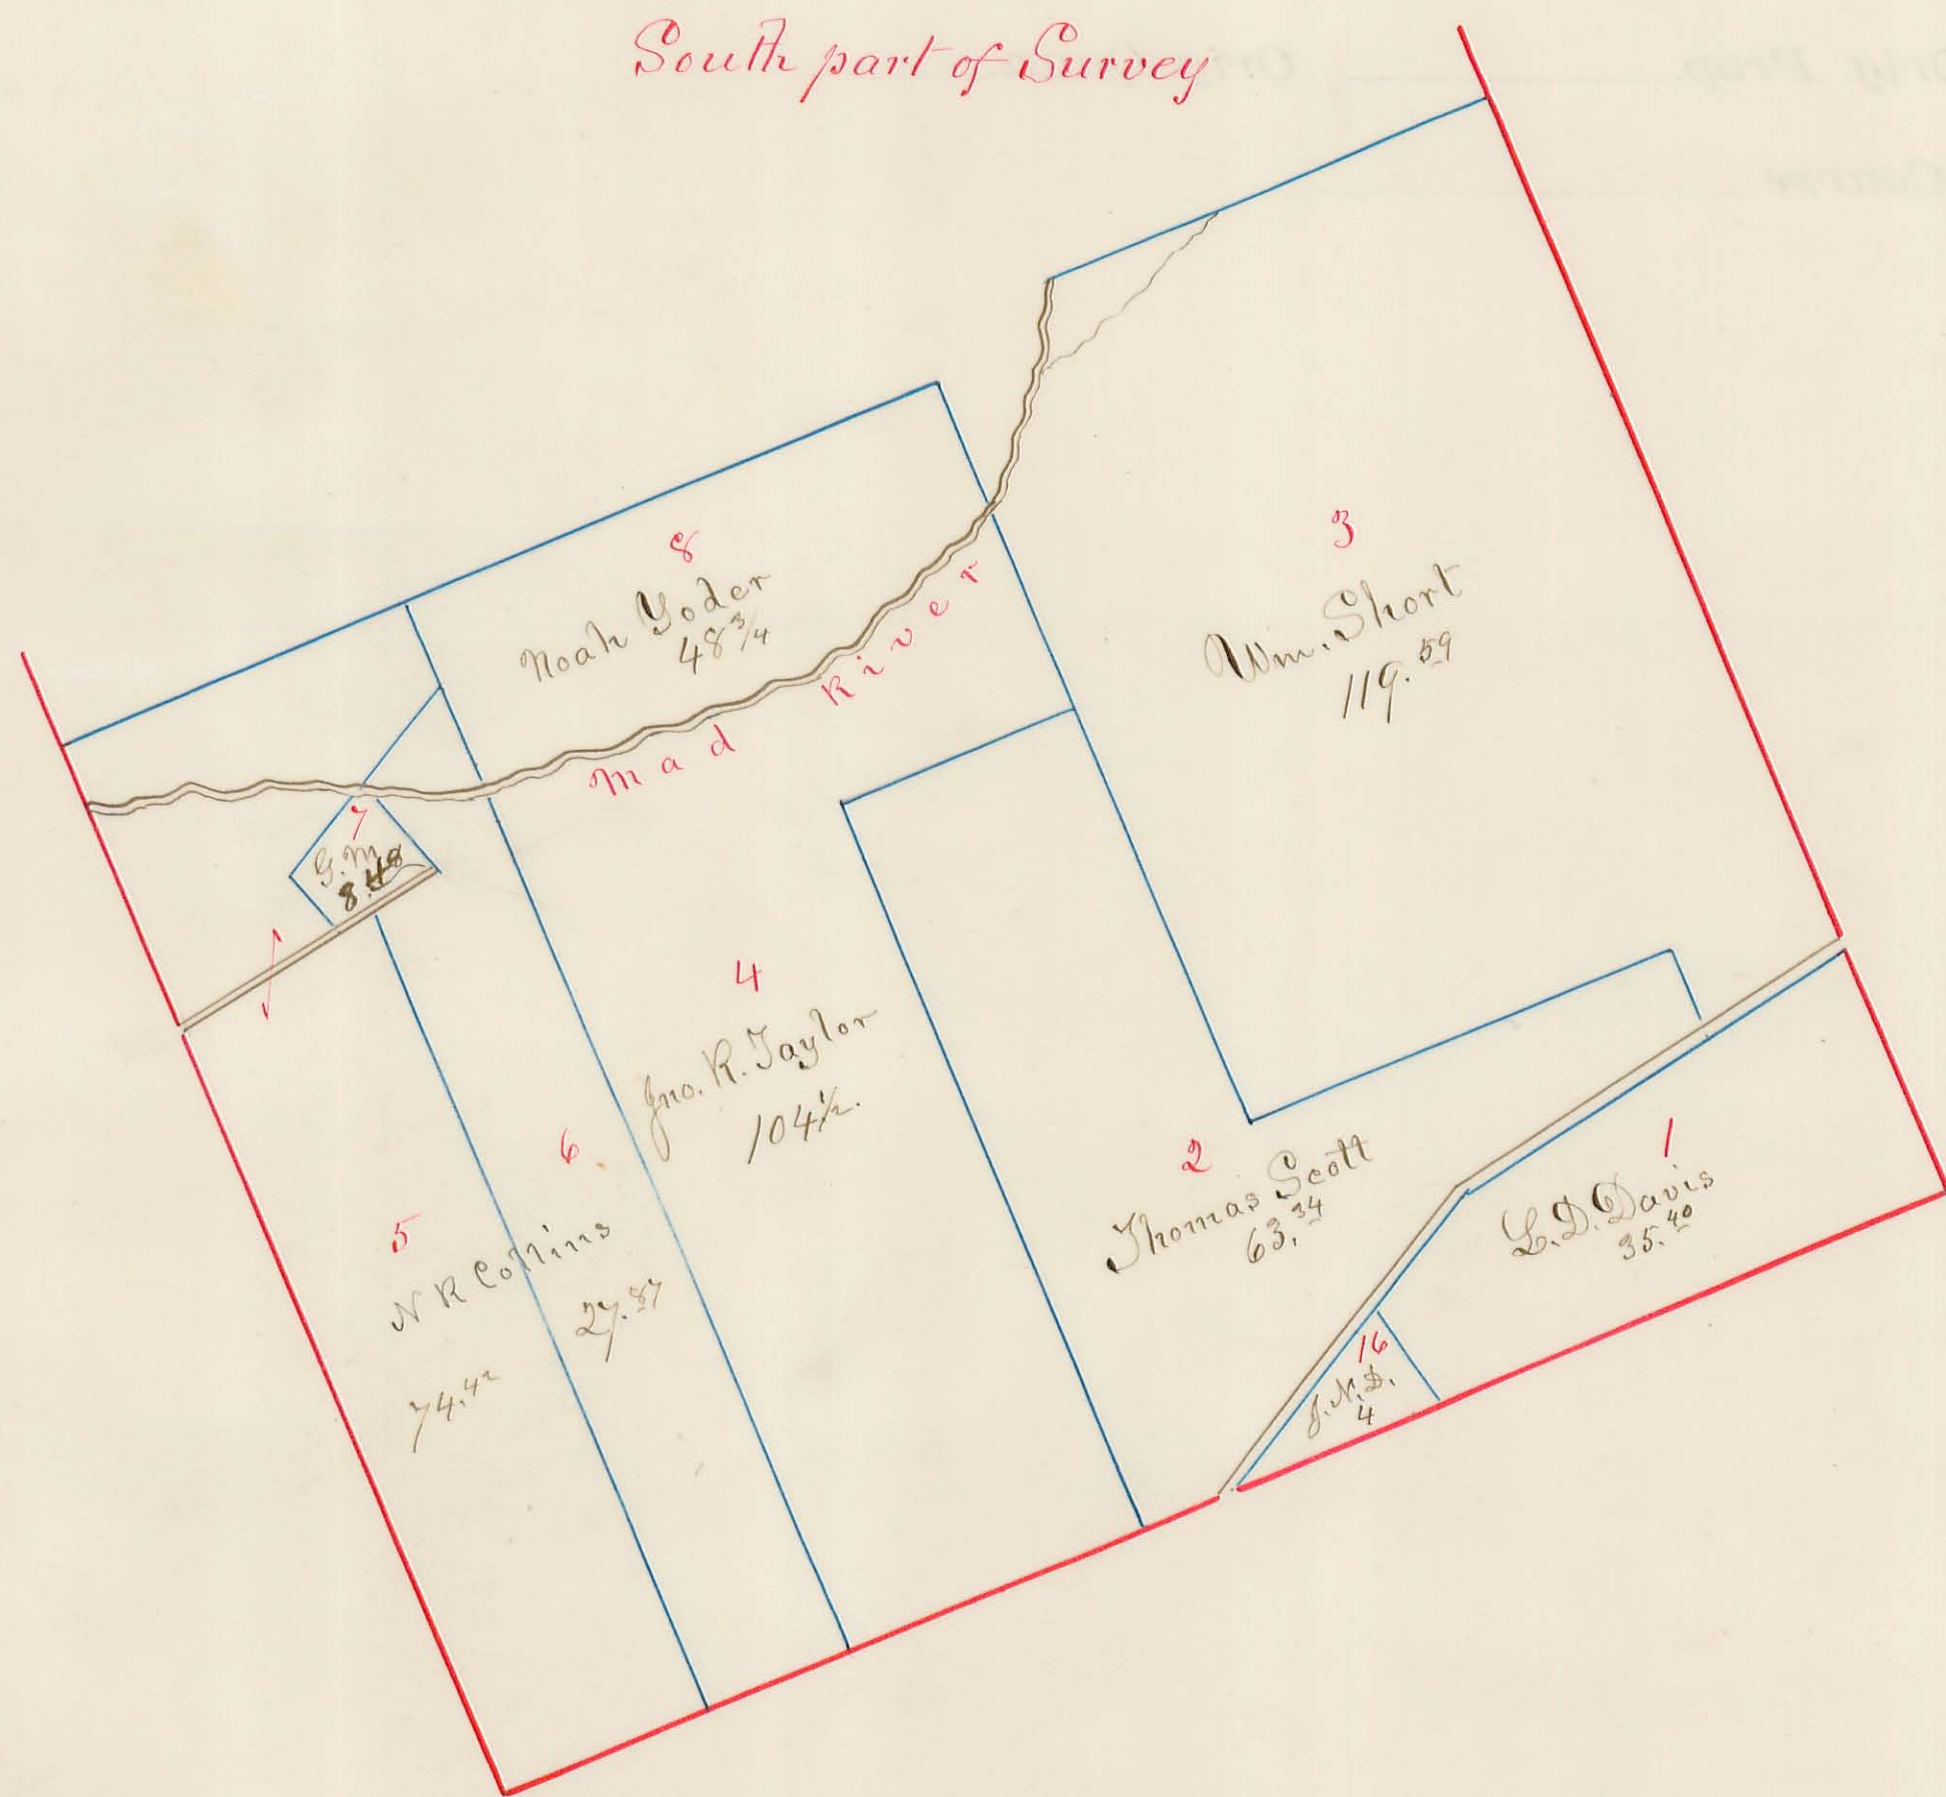 South part of Survey
8
Noah Yoder
48 3/4
Mad River
3
Wm. Short
119.59
7
G.M.
8.48
4
Jno. R. Taylor
104 1/2.
6
27.87
5
N R Collins
74.42
2
Thomas Scott
63.34
1
L.D. Davis
35.40
16
J.N.D.
4